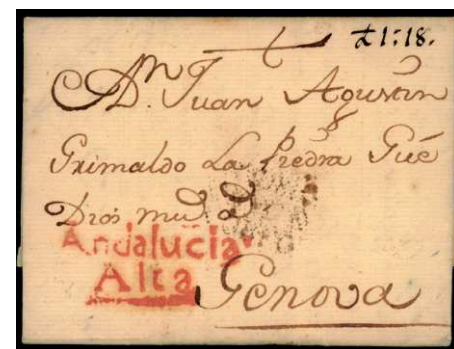 £1:18.
A Dn. Juan Agustin
Grimaldo La Piedra Gue
Dios
Andalucia
Alta
Genova